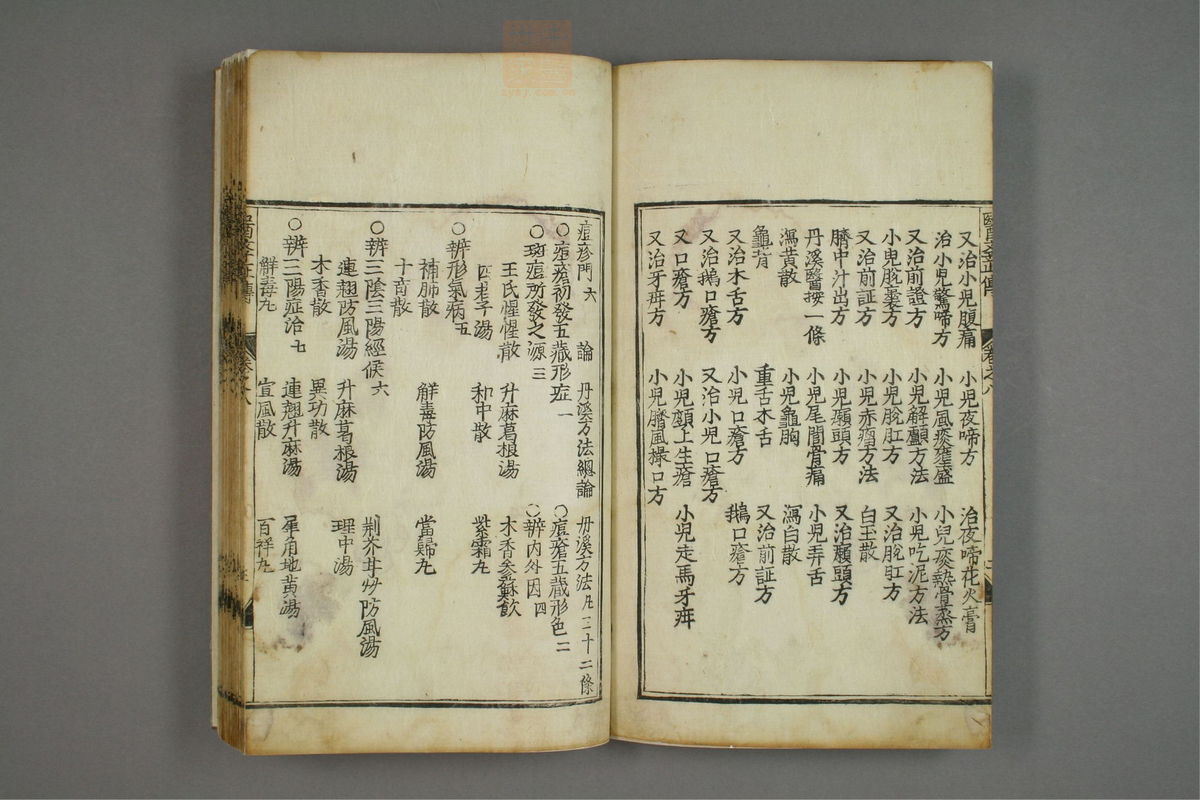 又治小兒腹痛 小兒夜啼方 治夜啼花火膏
治小兒驚啼方 小兒風痰壅盛 小兒痰熱骨蒸方
又治前證方 小兒解顱方法 小兒吃泥方法
小兒脫囊方 小兒脫肛方 又治脫肛方
又治前証方 小兒赤瘤方法 白玉散
臍中汁出方 小兒癩頭方 又治癩頭方
丹溪醫按一條 小兒尾閭骨痛 小兒弄舌
瀉黃散 小兒龜胸 瀉白散
龜背 重舌木舌 又治前証方
又治木舌方 小兒口瘡方 鵝口瘡方
又治鵝口瘡方 又治小兒口瘡方
又口瘡方 小兒顖上生瘡 小兒走馬牙疳
又治牙疳方 小兒臍風撮口方
醫學正傳 卷之八
痘疹門六 論 丹溪方法總論 丹溪方法凡三十二條
○痘瘡初發五藏形症一 ○痘瘡五藏形色二
○斑痘所發之源三 ○辨內外因四
王氏惺惺散 升麻葛根湯 木香參蘇飲
四君子湯 和中散 紫霜丸
○辨形氣病五
補肺散 解毒防風湯 當歸丸
十奇散
○辨三陰三陽經候六 荆芥甘草防風湯
連翹防風湯 升麻葛根湯 理中湯
木香散 異功散
○辨三陽症治七 連翹升麻湯 犀角地黃湯
解毒丸 宣風散 百祥丸
醫學正傳 卷之八